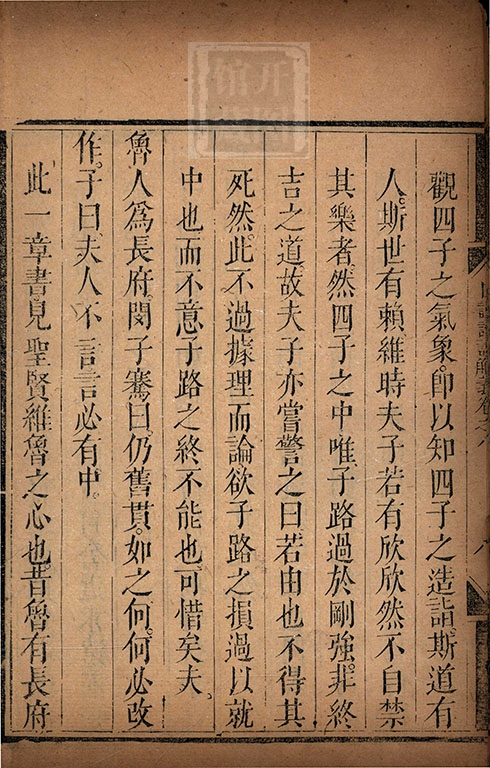 觀四子之氣象。即以知四子之造詣。斯道有
人。斯世有賴。維時夫子若有欣欣然不自禁
其樂者。然四子之中。唯子路過於剛強。非終
吉之道。故夫子亦嘗警之曰。若由也。不得其
死然。此不過據理而論。欲子路之損過以就
中也。而不意子路之終不能也。可惜矣夫。
魯人爲長府。閔子騫曰。仍舊貫。如之何。何必改
作。子曰。夫人不言。言必有中。
此一章書見聖賢維魯之心也。昔魯有長府